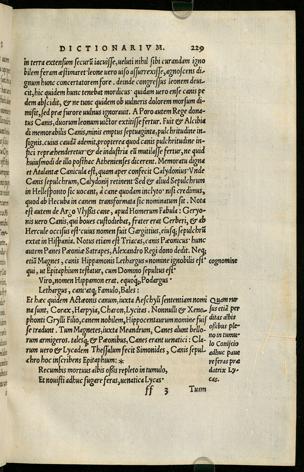 DICTIONARIVM. 229
in terra extensum securũ iacuisse, ueluti nihil sibi curandum igno
bilem feram æstimaret leone uero uiso assurrexisse, agnoscens di-
gnum hunc concertatorem fore. deinde congressus leonem deuicit,
hic quidem hunc tenebat mordicus: quidam uero ense canis pe
dem abscidit, & ne tunc quidem ob uulneris dolorem morsum di-
misit, sed præ furore uulnus ignorauit. A Poro autem Rege dona-
tus Canis, duorum leonum uictor extitisse fertur. Fuit & Alcibia
di memorabilis Canis, minis emptus septuaginta, pulchritudine in-
signis, cuius caudã ademit, propterea quod canis pulchritudine in-
fici reprehenderetur & de industria eũ mutilasse fertur, ne quid
huiusmodi de illo posthac Athenienses dicerent. Memoratu digna
et Atalantæ Canicula est, quam aper confecit Calydonius. Vnde
Canis sepulchrum, Calydonij retinent. Sed & aliud Sepulchrum
in Hellesponto sic uocant, à cane quodam incipto nisi credimus,
quod ab Hecuba in canem transformata sic nominatum sit. Nota
est autem de Argo Vlyssis cane, apud Homerum Fabula: Geryo-
nis uero Canis, qui boues custodiebat, frater erat Cerberi, & ab
Hercule occisus est: cuius nomen fuit Gargittius, eiusq; sepulchrũ
extat in Hispania. Notus etiam est Triacas, canis Pæonicus: hunc
autem Panes Pæonia Satrapes, Alexandro Regi dono dedit. Neq;
etiã Magnes, canis Hippamonis Lethargus nomine ignobilis est
qui, ut Epitaphium testatur, cum Domino sepultus est
cognomine
Viro, nomen Hippamon erat, equoq; Podargus
Lethargus, can'atq; Famulo, Bales:
Et hæc quidem Actæonis canum, iuxta Aeschyli sententiam nomi
na sunt, Corax, Harpyia, Charon, Lycitas. Nonnulli & Xeno-
phontis Grylli Filio, canem nobilem, Hippocentaurum nomine fuis
se tradunt. Tum Magnetes, iuxta Meandrum, Canes alunt bello-
rum armigeros. talesq; & Pæonibus, Canes erant uenatici: Cla-
rum uero & Lycadem Thessalum fecit Simonides, Canis sepul-
chro hoc inscribens Epitaphium:*
Recumbis mortuus albis ossis repleto in tumulo,
Et nouisti adhuc fugare feras, uenatica Lycas
ff 3 Tum